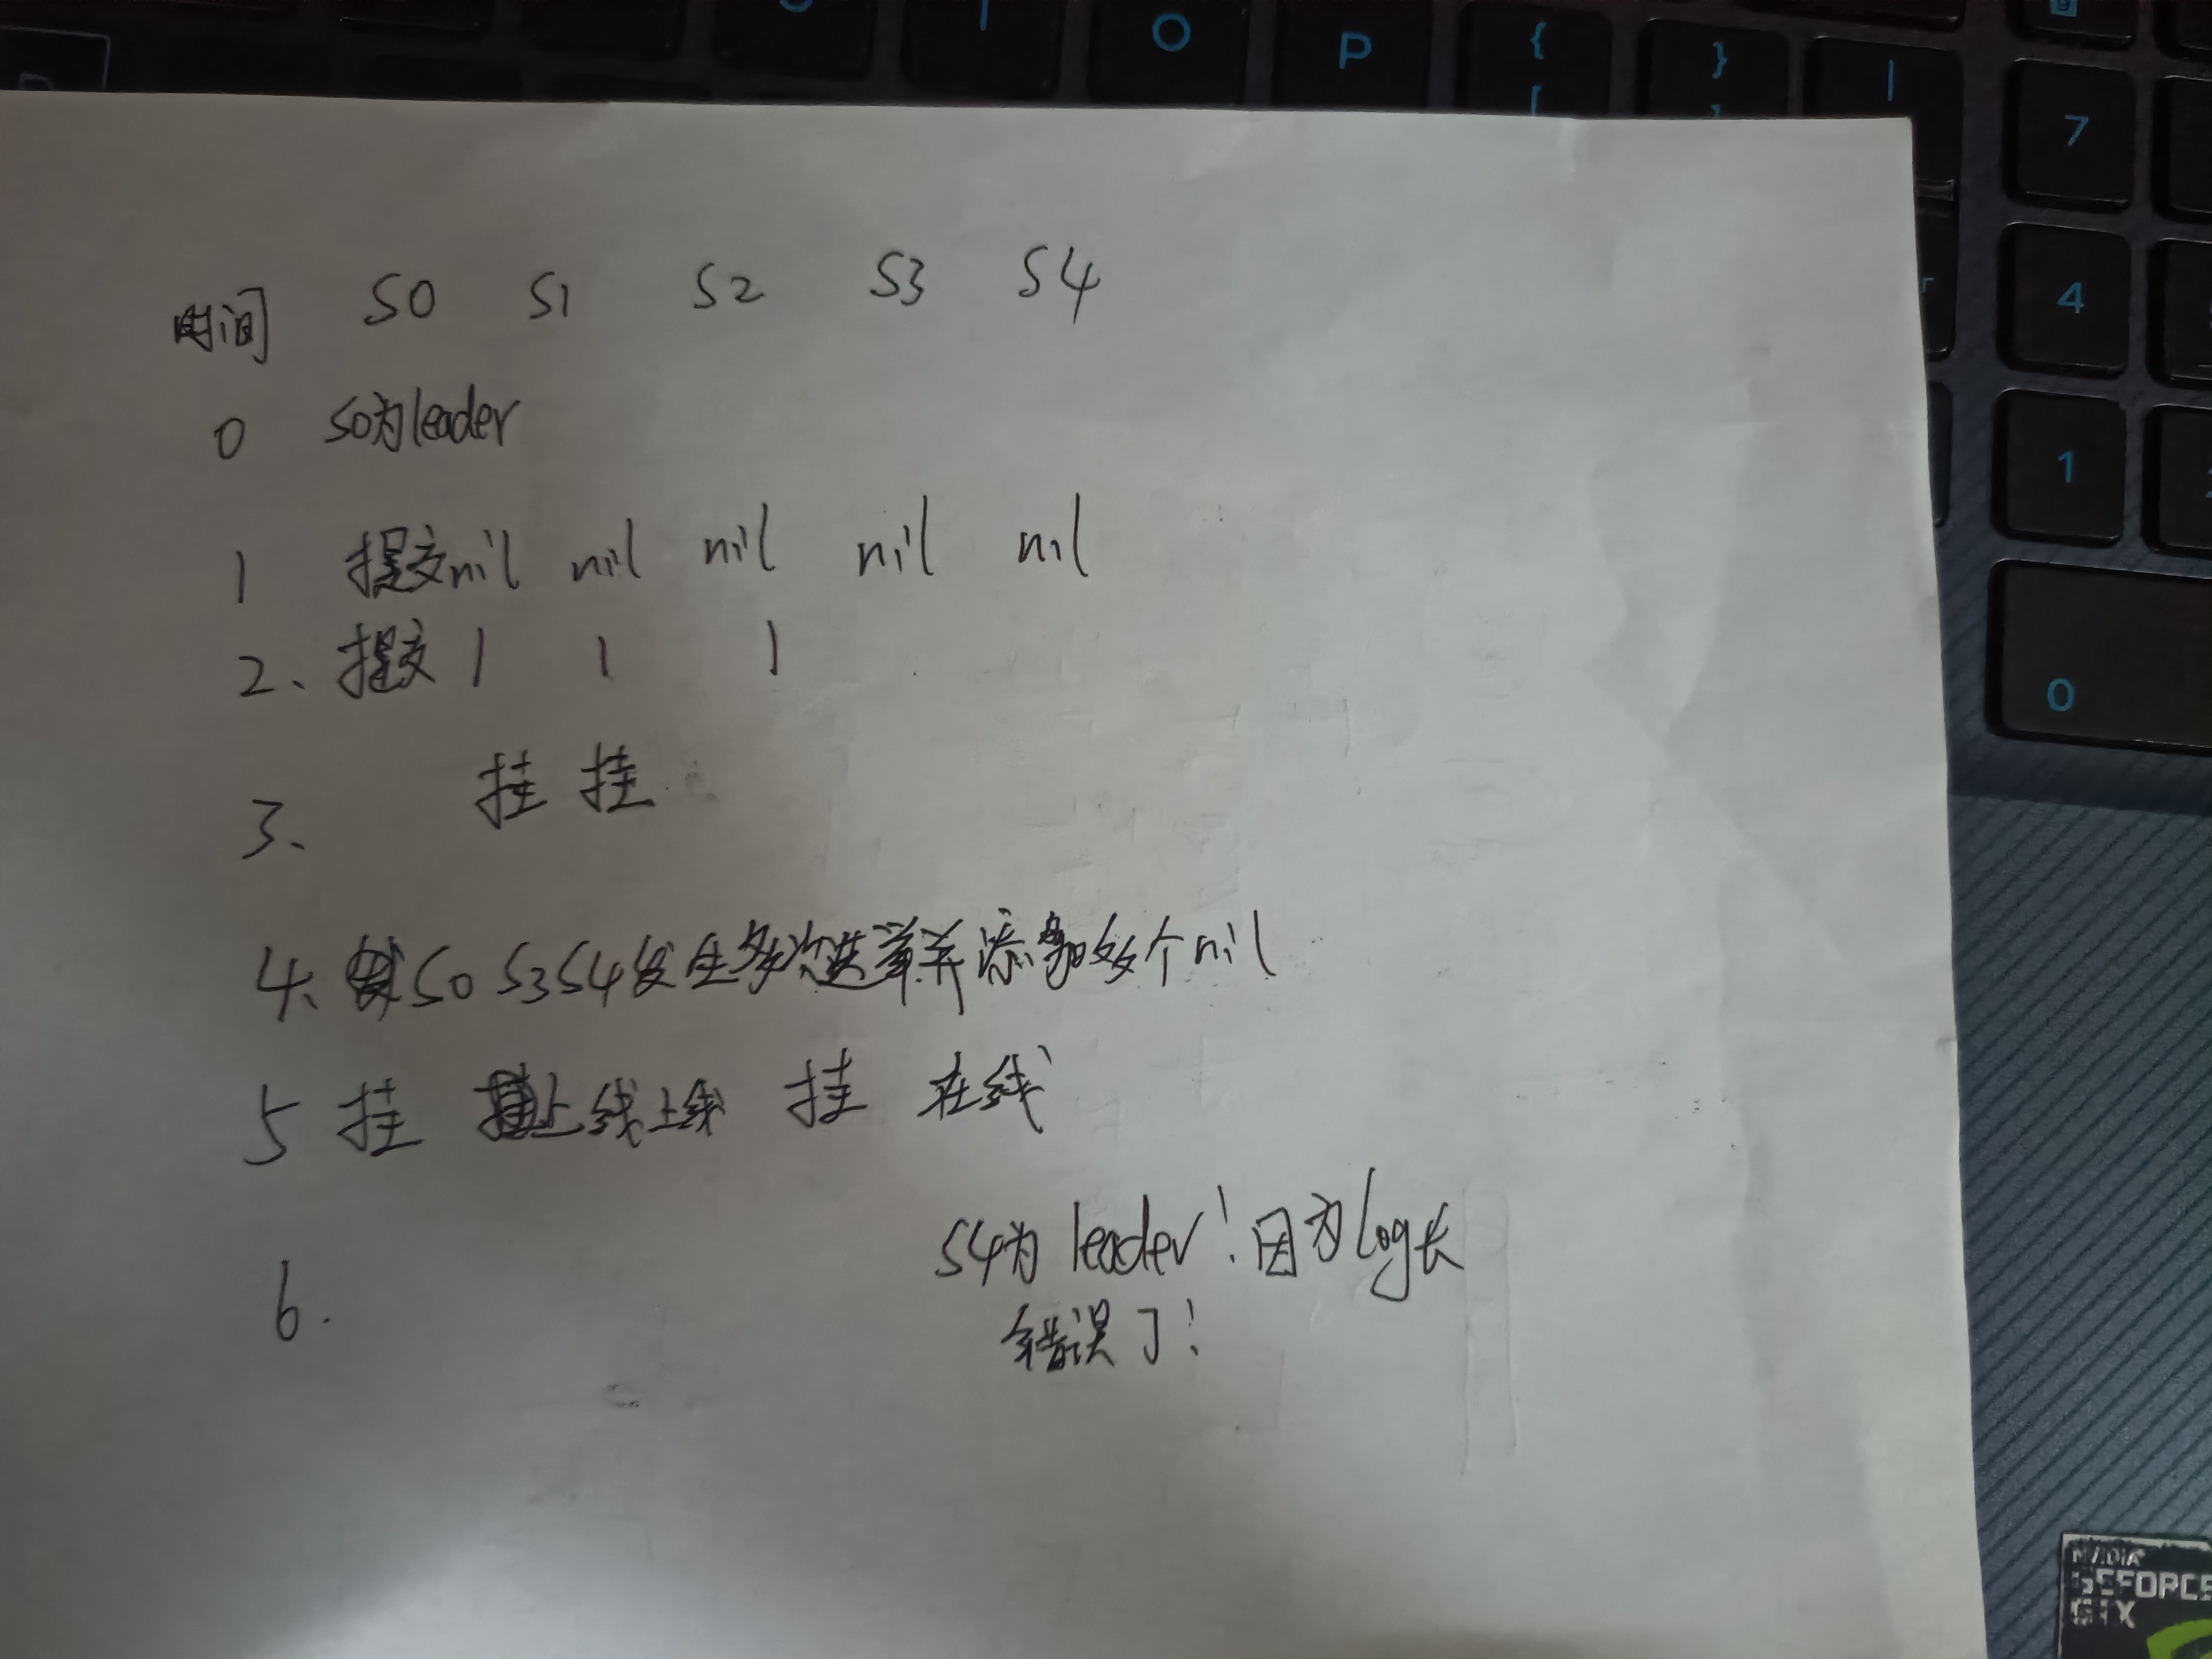 O P { } |
[ ]
7
时间 S0 S1 S2 S3 S4
4
0 S0为leader
1
1 提交nil nil nil nil nil
2、提交 1 1 1
0
3、 挂 挂
4、S0 S3 S4发生多次选举并添加多个nil
5 挂 上线 上线 挂 在线
6. S4为leader!因为log长
错误了!
NVIDIA
GEFORCE
GTX